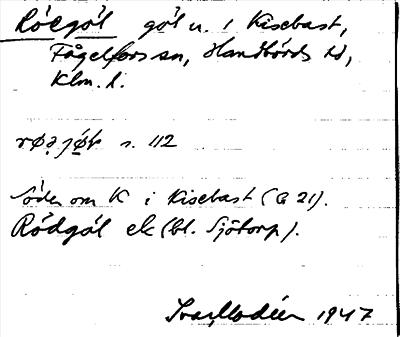 Rösgöl göl u. i Kisebast,
Fågelfors sn, Handbörds hd,
Klm. l.
s. 112
Söder om K i Kisebast (G 21).
Rödgöl ek (bl. Sjötorp).
1947